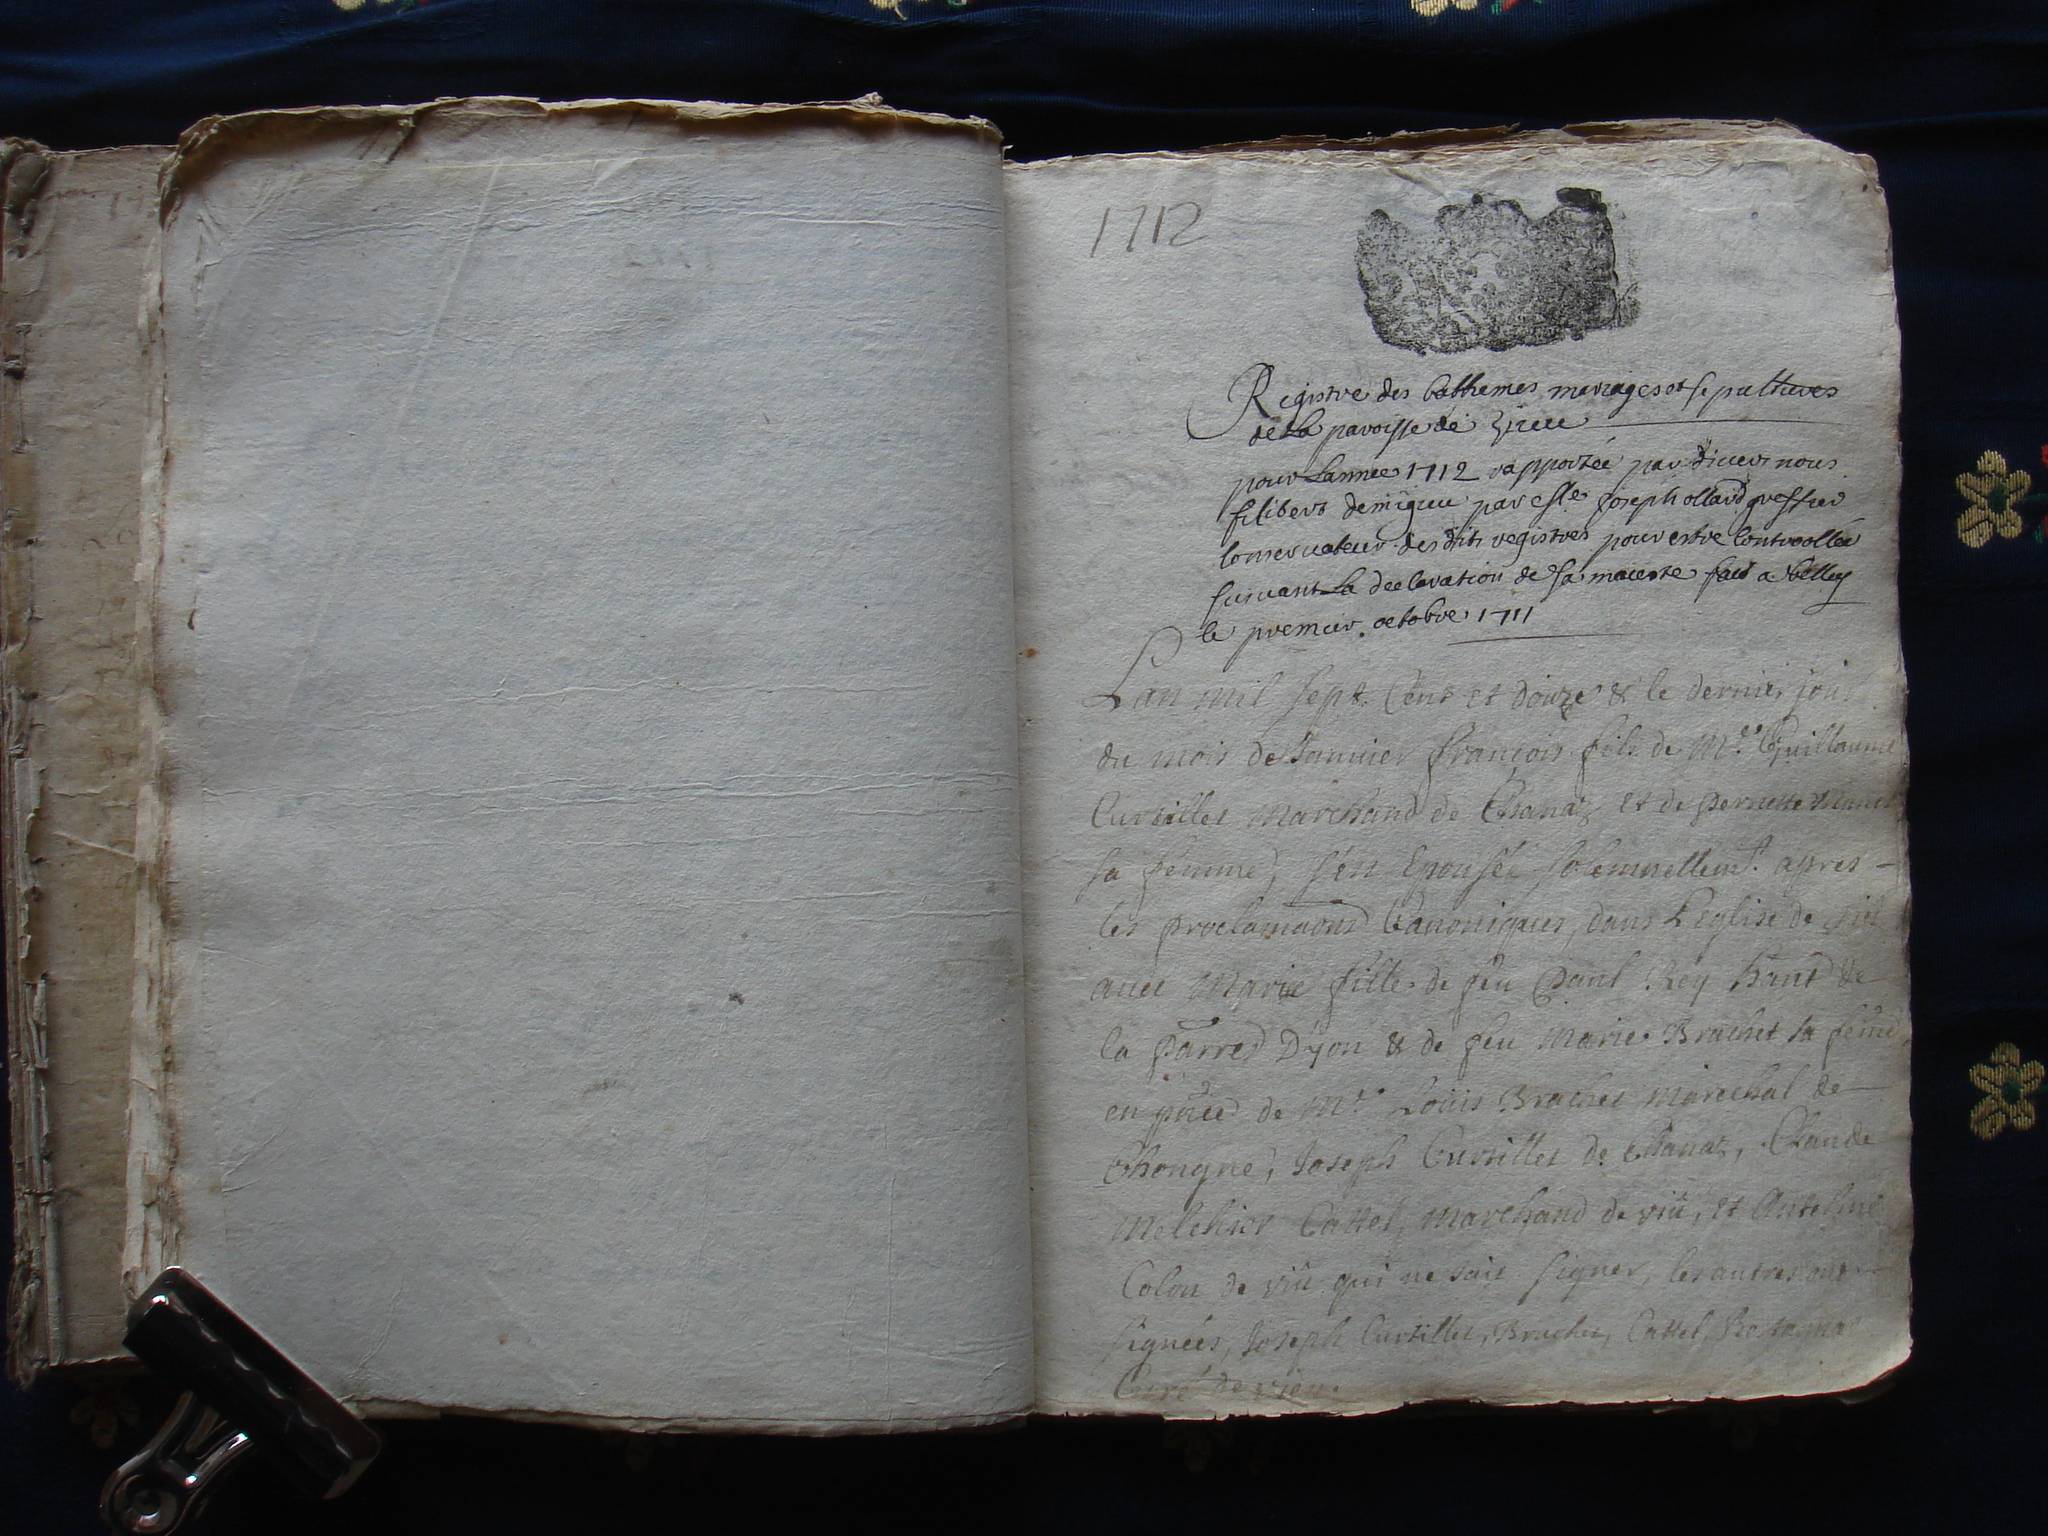 1712
Registre des bathemes mariages et sepultures
de La paroisse de Vieu
pour Lannee 1712 rapportée par divers nous
filibert demigieu par est Joseph ollard greffier
conservateur des dits registres pour estre controollée
suivant La declaration de sa maieste fait a belley
le premier octobre 1711
Lan mil sept Cent et douze & le dernier jour
du mois de Janvier françois fils de Mre Guillaume
Cursillet Marchand de Chanaz et de pernette
sa femme, s'en Epousé solemnellemt. apres
les proclamaons Canoniques, dans Leglise de
avec Marie fille de feu Paul Rey hant de
la Parred D'yon & de feu Marie Brachet sa feme
en pñce de Mr Loüis Brachet Marechal de
Chongne, Joseph Cursillet de Chanaz, Claude
Melchior Cattel, Marchand de viu, et Antelme
Colon de viu qui ne sait signer, les autres ont
signées, Joseph Cursillet, Brachet, Cattel, Rostagnat
Curé de vieu.